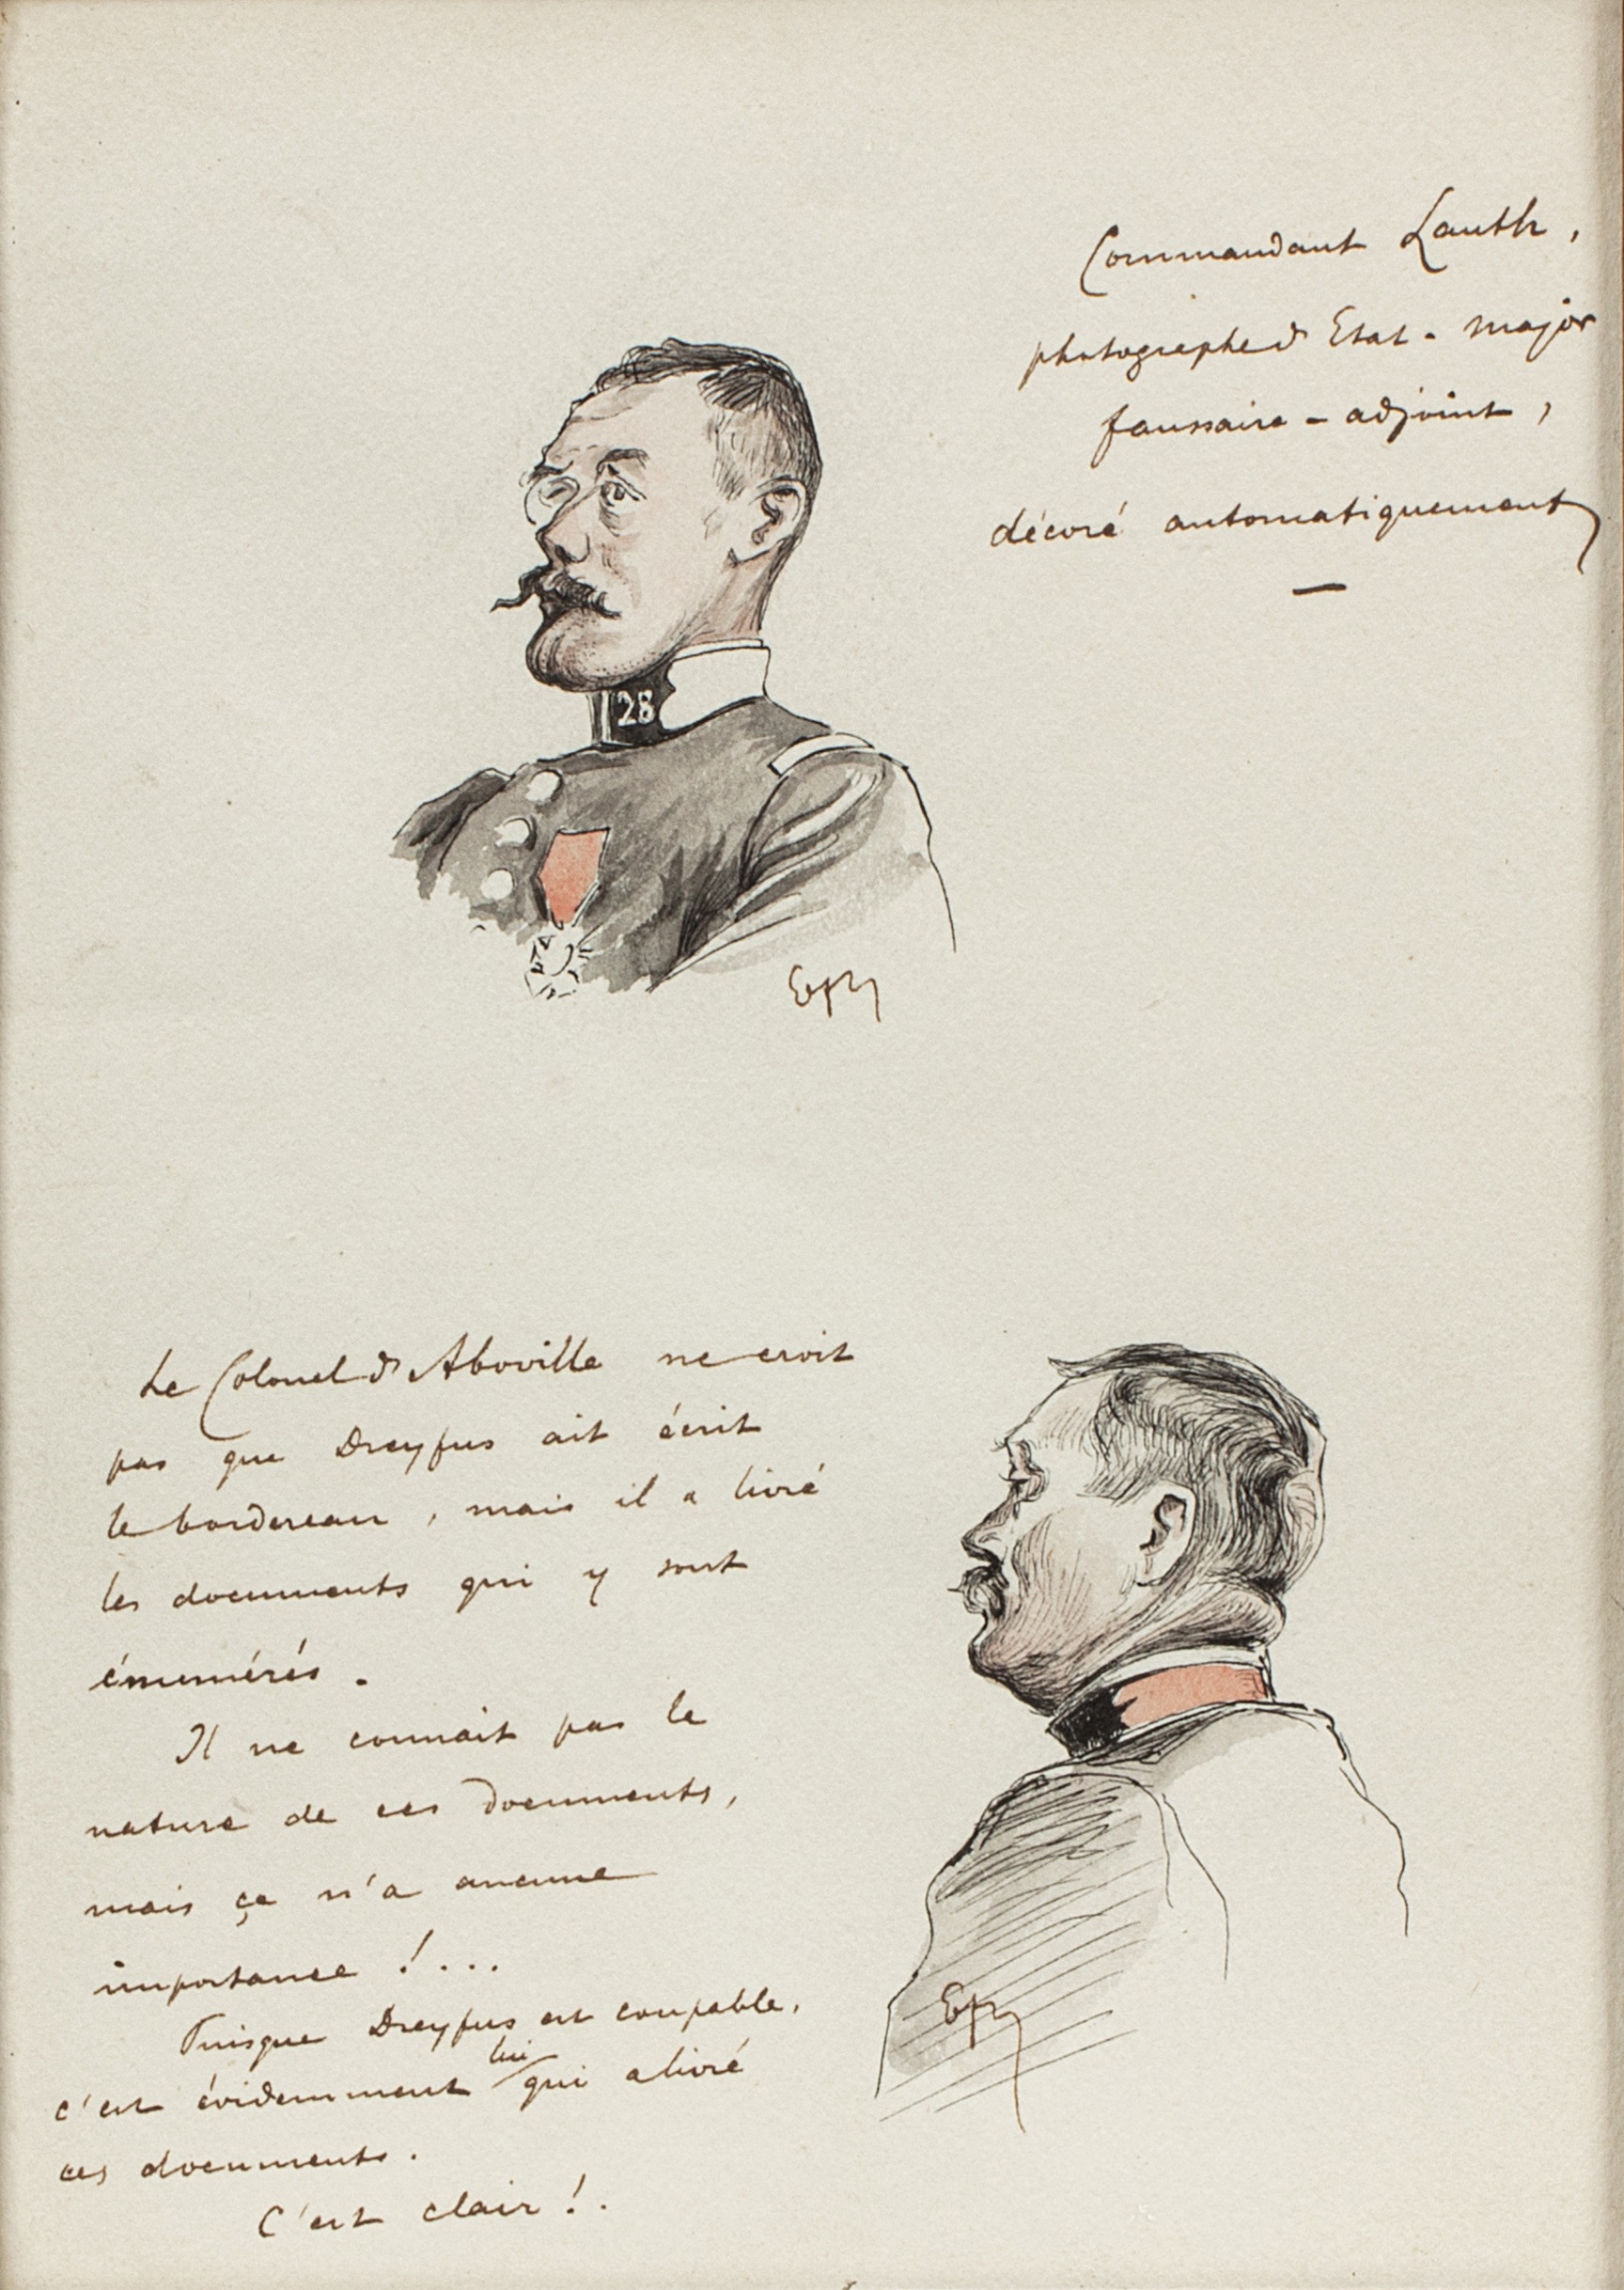 Commandant Lauth,
photographe d'Etat-major
faussaire-adjoint,
décoré automatiquement
28
Le Colonel d'Aboville ne croit
pas que Dreyfus ait écrit
le bordereau, mais il a livré
les documents qui y sont
énumérés.
Il ne connait pas la
nature de ces documents,
mais ça n'a aucune
importance !...
Puisque Dreyfus est coupable,
c'est évidemment lui qui a livré
ces documents.
C'est clair !.